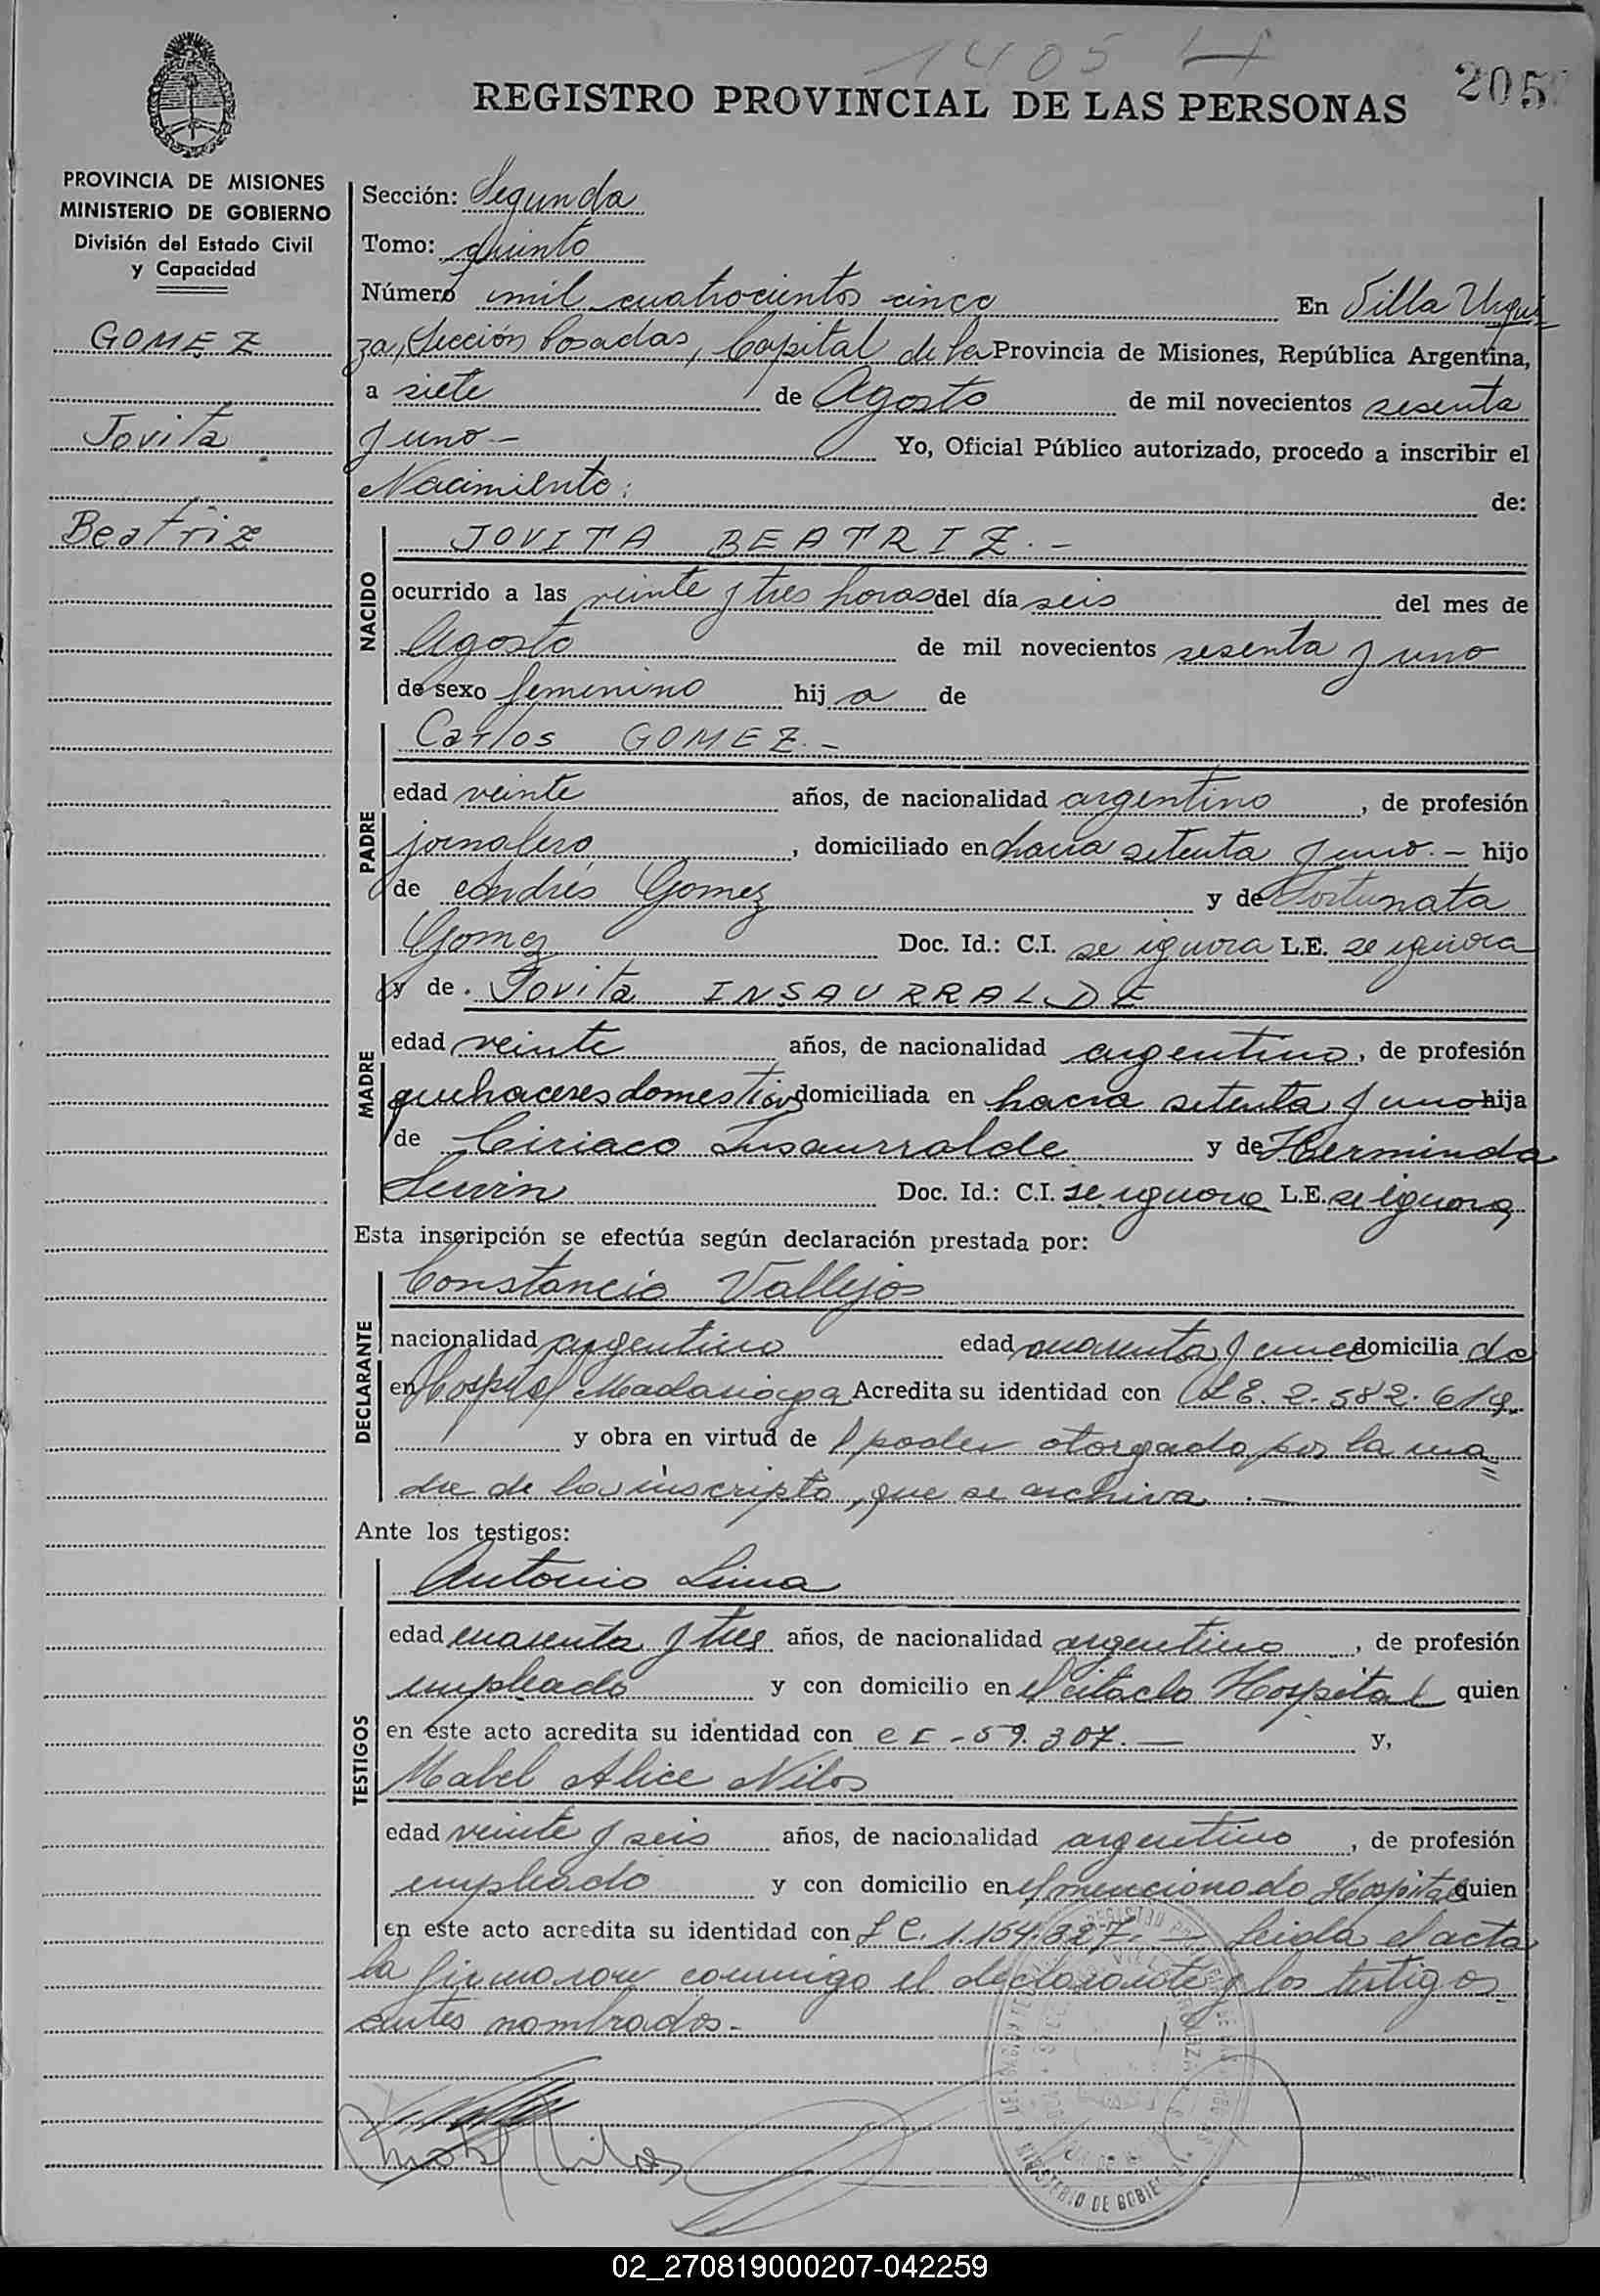 1405
205
REGISTRO PROVINCIAL DE LAS PERSONAS
PROVINCIA DE MISIONES
MINISTERIO DE GOBIERNO
División del Estado Civil
y Capacidad
GOMEZ
Jovita
Beatriz
Sección: Segunda
Tomo: quinto
Número mil cuatrocientos cinco En Villa Urqui
za, Sección Posadas, Capital de la Provincia de Misiones, República Argentina,
a siete de Agosto de mil novecientos sesenta
y uno.- Yo, Oficial Público autorizado, procedo a inscribir el
Nacimiento: de:
NACIDO
JOVITA BEATRIZ.-
ocurrido a las veinte y tres horas del día seis del mes de
Agosto de mil novecientos sesenta y uno
de sexo femenino hij a de
PADRE
Carlos GOMEZ.-
edad veinte años, de nacionalidad argentino, de profesión
jornalero, domiciliado en chacra setenta y uno.- hijo
de Andrés Gomez y de Fortunata
Gomez Doc. Id.: C.I. se ignora L.E. se ignora
y de. Jovita INSAURRALDE
MADRE
edad veinte años, de nacionalidad argentina, de profesión
quehaceres domesticos domiciliada en chacra setenta y uno hija
de Ciriaco Insaurralde y de Herminda
Doc. Id.: C.I. se ignora L.E. se ignora
Esta inscripción se efectúa según declaración prestada por:
DECLARANTE
Constancio Vallejos
nacionalidad argentino edad cuarenta y domicilia do
en Hospital Madariaga Acredita su identidad con LE. 2.582.619.-
y obra en virtud de poder otorgado por la ma
dre de la inscripta, que se archiva.-
Ante los testigos:
TESTIGOS
Antonio Lima
edad cuarenta y tres años, de nacionalidad argentino, de profesión
empleado y con domicilio en el citado Hospital quien
en este acto acredita su identidad con C I - 59.307.- y,
Mabel Alice Nilos
edad veinte y seis años, de nacionalidad argentino, de profesión
empleado y con domicilio en el mencionado Hospital quien
en este acto acredita su identidad con L C. 1.154.327.- Leida el acta
la firmaron conmigo el declarante y los testigos
antes nombrados.-
MINISTERIO DE GOBIERNO
02_270819000207-042259